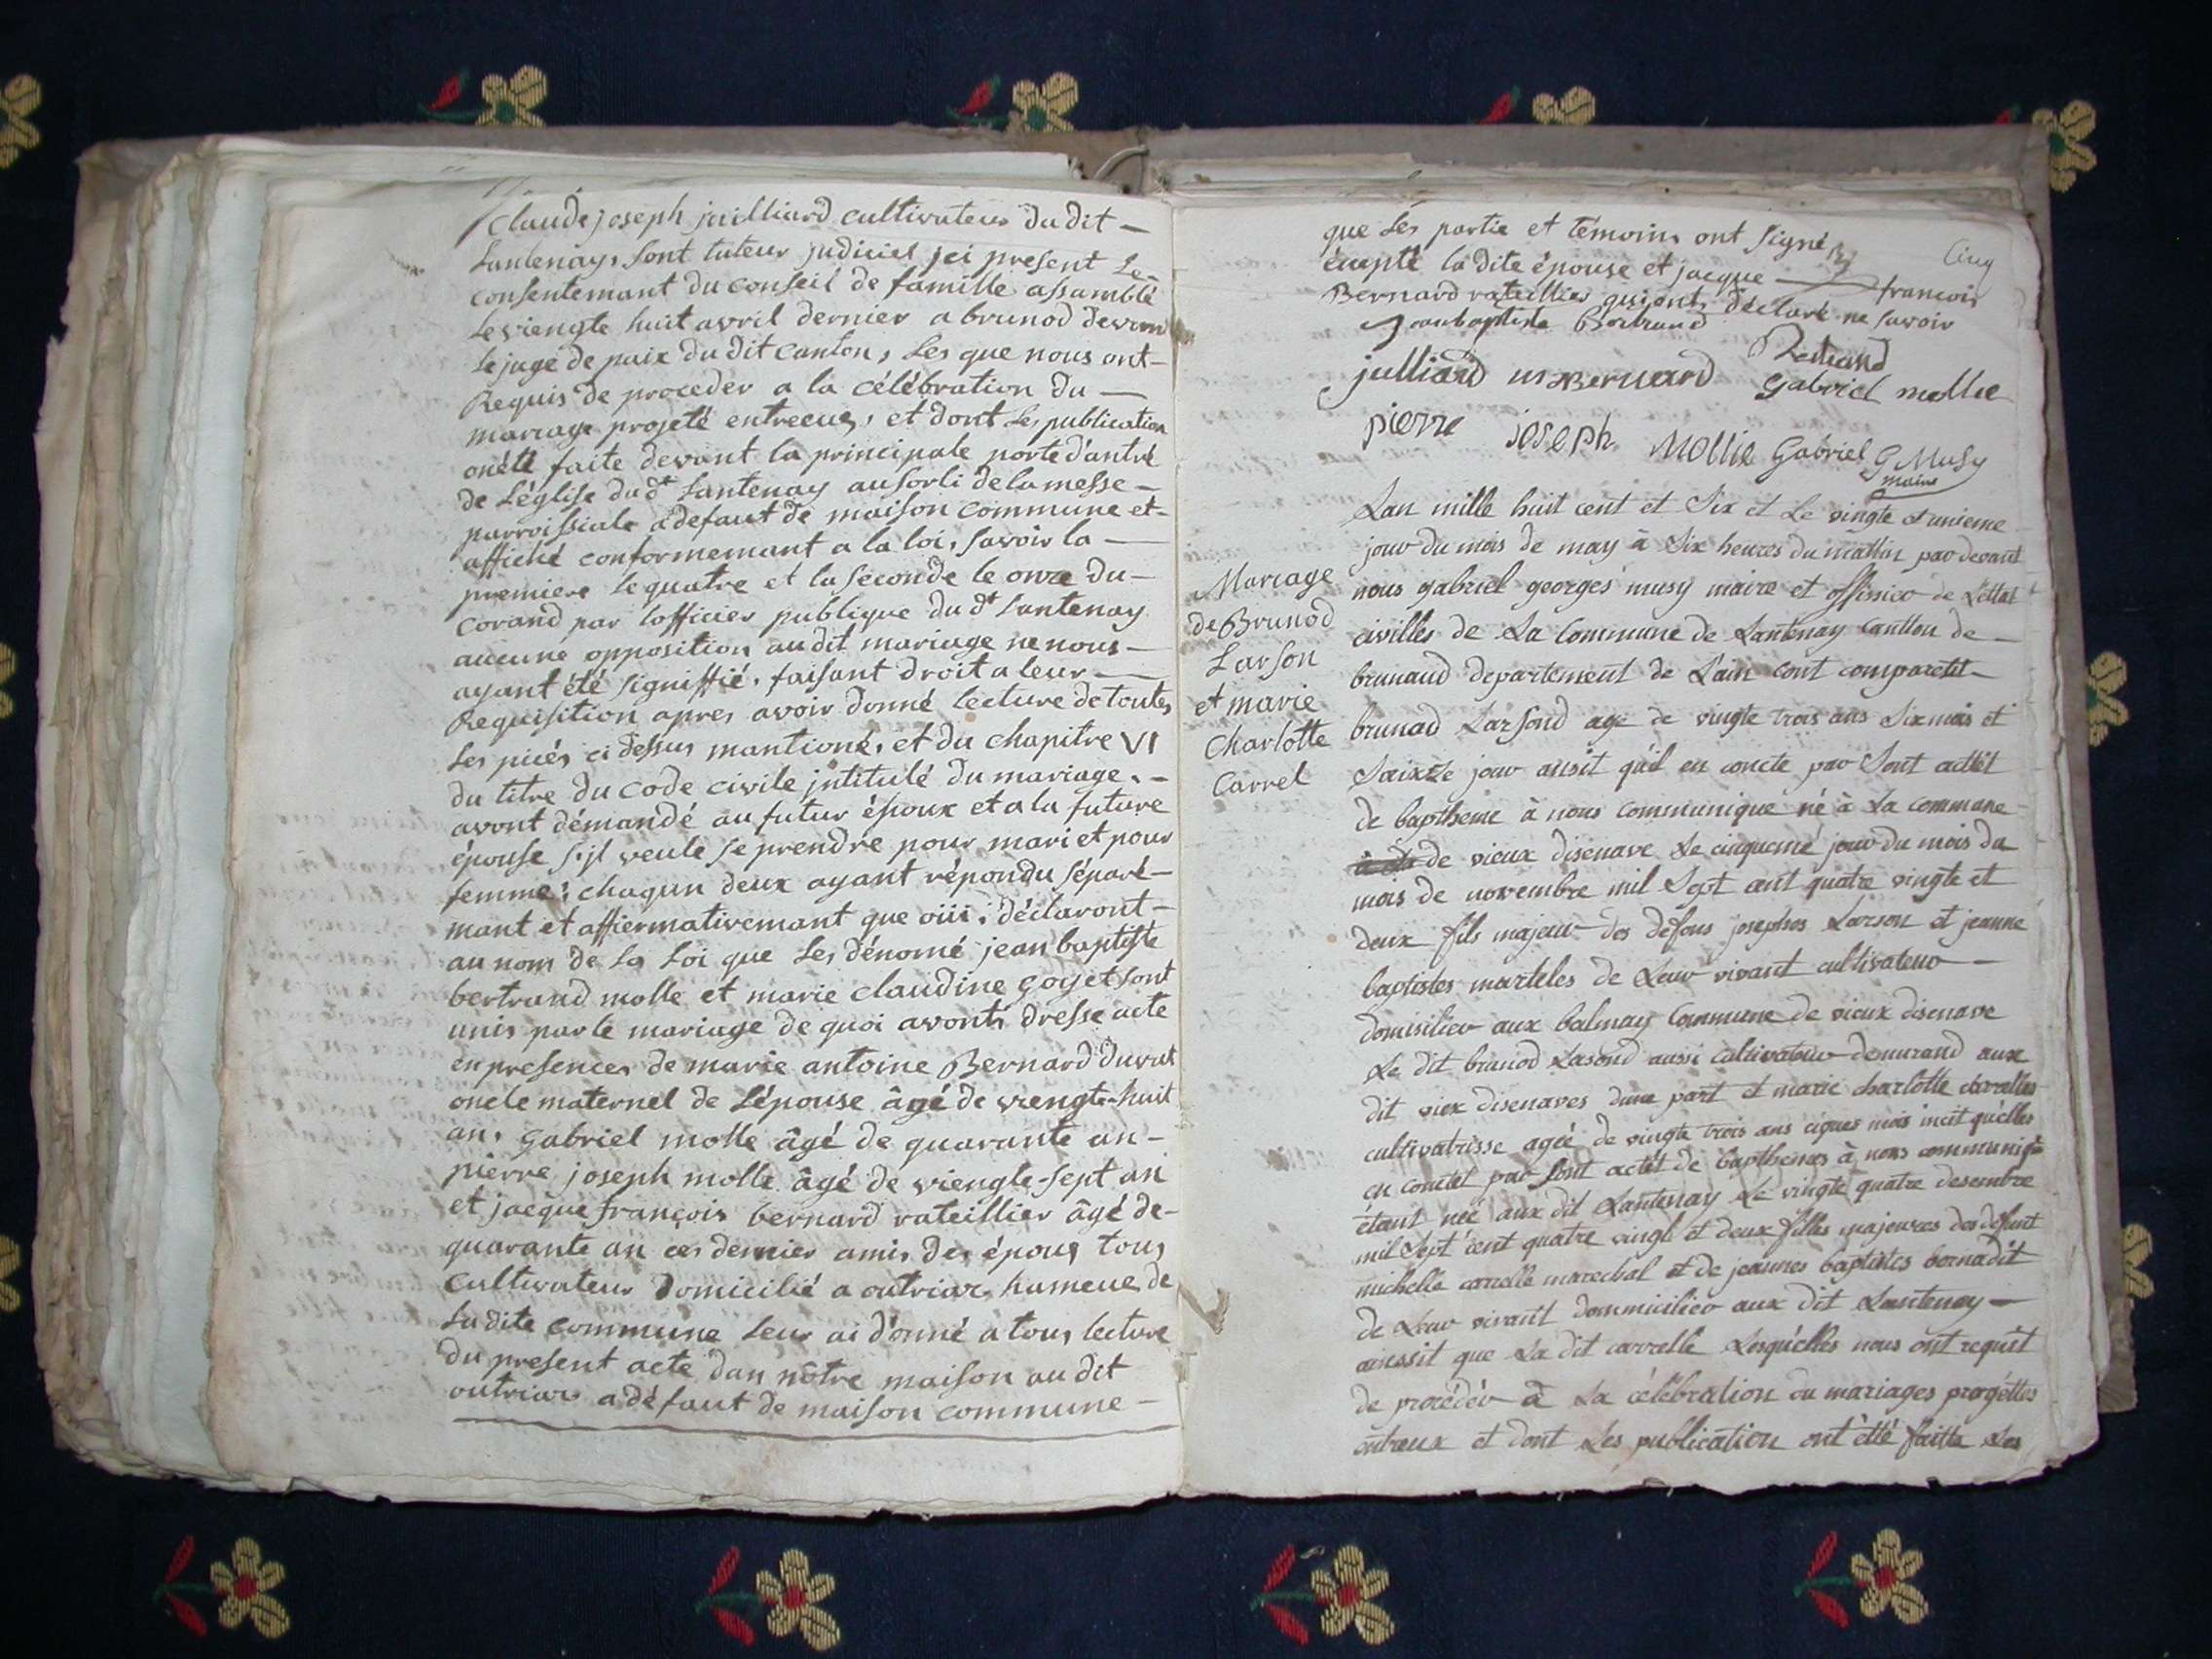 Claude joseph juilliard cultivateur du dit
Lantenay, sont tuteur judiciel jci present Le
consentemant du conseil de famille assamblé
le viengte huit avril dernier a brunod devran
le juge de paix du dit canton, Les que nous ont
Requis de proceder a la célébration du
mariage projeté entreeux, et dont Les publication
onété faite devant la principale porte d'antré
de L'église du dt Lantenay au sorti de la messe
parroissiale a defaut de maison commune et
affiché conformemant a la loi, savoir la
premiere le quatre et la seconde le onze du
corand par l'officier publique du dt Lantenay
aucune opposition au dit mariage ne nous
ayant été signiffié, faisant droit a leur
Requisition apres avoir donné lecture de toutes
Les piiés ci dessus mantioné, et du chapitre VI
du titre du code civile jntitulé du mariage,
avont démandé au futur époux et a la future
épouse s'jl veule se prendre pour mari et pour
femme; chaqun deux ayant répondu séparé-
mant et affiermativemant que oiii; déclaront
au nom de La Loi que Les dénomé jean baptiste
bertrand molle et marie claudine goyet sont
unis par le mariage de quoi avonts dresse acte
en presences de marie antoine Bernard duvat
oncle maternel de L'épouse âgé de viengte-huit
an, gabriel molle âgé de quarante an
pièrre joseph molle âgé de viengte-sept an
et jacque françois bernard rateillier âgé de
quarante an ces dernier amis des époux tous
cultivateur domicilié a outriar hameue de
Ladite commune leur ai donné a tous lecture
du present acte dan nôtre maison au dit
outriar a défaut de maison commune
que Les partie et témoins ont signé
Cinq
éxcepté la dite épouse et jacque françois
Bernard rateillier qui ont déclaré ne savoir
jeanbaptiste Bertrand
Bertrand
julliard m a Bernard
Gabriel mollie
pierre joseph Mollie Gabriel G Musy
maire
Mariage
de Brunod
Larson
et marie
Charlotte
Carrel
Lan mille huit cent et Six et Le vingte et unieme
jour du mois de may à Six heures du mattin par devant
nous gabriel georges musy maire et offissier de L'ettat
civilles de La Commune de Lantenay Cantton de
brunaud departement de L'ain cont comparetit
brunad Larsond age de vingte trois ans Sixmois et
Saixze jour ansit qu'il en concte par Sont acttét
de baptheme à nous communique né à La commune
de vieux disenave Le cinquemé jour du mois du
mois de novembre mil Sept cent quatre vingte et
deux fils majeur des défons josephes Larson et jeanne
baptistes marteles de Leur vivant cultivateur
domisilier aux balmay Commune de vieux disenave
Le dit brunod Lasond aussi cultivateur demurand aux
dit viex disenaves dune part et marie charlotte carrelles
cultivatrisse agée de vingte trois ans cique mois incit quelles
en conctet par Sont actét de bapthemes à nous communiqué
étant née aux dit Lantenay Le vingte quatre desembre
mil Sept cent quatre vingt et deux filles majeures des défunt
michelle carrelle marechal et de jeannes baptistes bernadit
de Leur vivant dommicilier aux dit Lantenay
ainssit que La dit carrelle Lesquelles nous ont requit
de procédér à La célébration du mariages progéttes
entreux et dont Les publication ont étté faitte Les